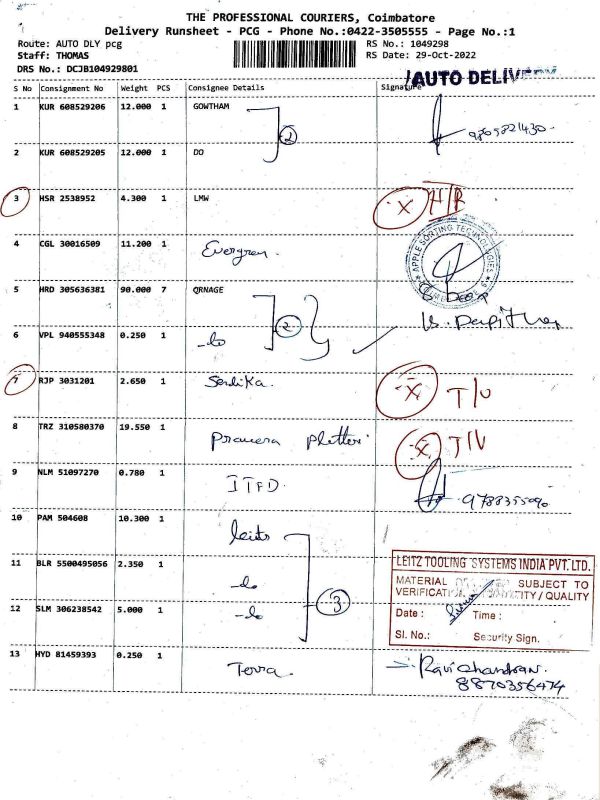 THE PROFESSIONAL COURIERS, Coimbatore
Delivery Runsheet - PCG - Phone No.:0422-3505555 - Page No.:1
Route: AUTO DLY pcg
RS No.: 1049298
Staff: THOMAS
RS Date: 29-Oct-2022
DRS No.: DCJB104929801
AUTO DELIVERY
S No Consignment No Weight PCS Consignee Details Signature
1 KUR 608529206 12.000 1 GOWTHAM
2
2 KUR 608529205 12.000 1 DO
3 HSR 2538952 4.300 1 LMW X
4 CGL 30016509 11.200 1 Evergren
APPLE SORTING TECHNOLOGIES
5 HRD 305636381 90.000 7 QRNAGE
2
6 VPL 940555348 0.250 1 -do
7 RJP 3031201 2.650 1 X T/U
8 TRZ 310580370 19.550 1 X
9 NLM 51097270 0.780 1 ITFD.
10 PAM 504608 10.300 1 leitz
11 BLR 5500495056 2.350 1 -do
3
12 SLM 306238542 5.000 1 -do
LEITZ TOOLING SYSTEMS INDIA PVT. LTD.
MATERIAL SUBJECT TO
VERIFICATION QUANTITY / QUALITY
Date : Time :
Sl. No.: Security Sign.
13 HYD 81459393 0.250 1 Terra. Ravichandran.
8870356474